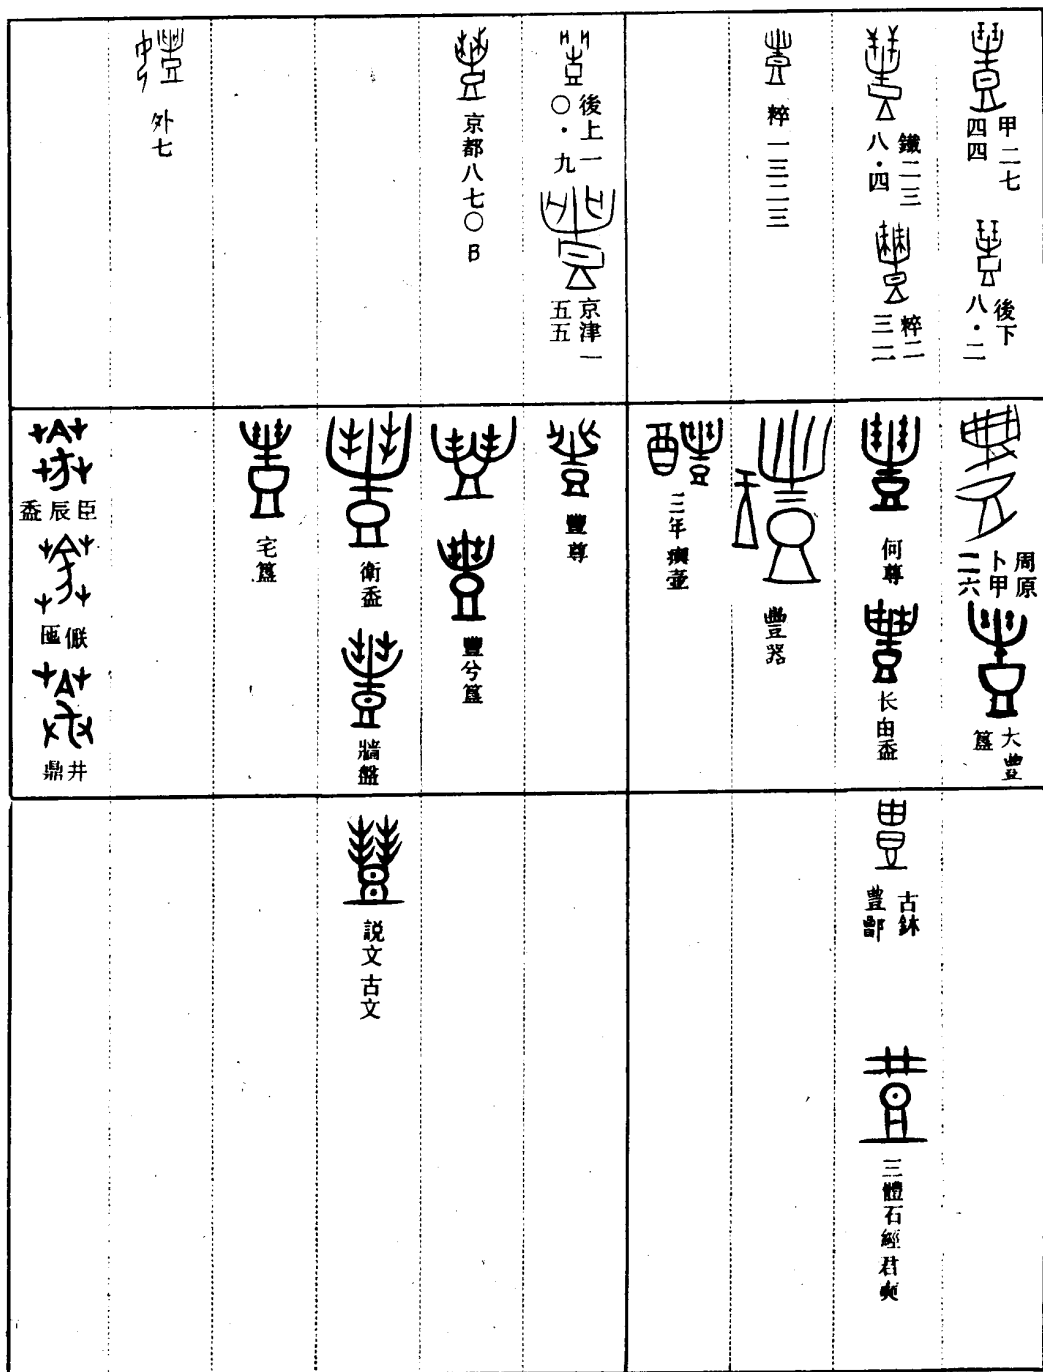 甲二七
四四
後下
八・二
鐵二三
八・四
粹二
三二
粹一三二三
後上一
〇・九
京津一
五五
京都八七〇B
外七
周原
卜甲
二六
大豐
簋
何尊
长甶盉
豐器
三年𤼈壺
豐尊
豐兮簋
衛盉
牆盤
宅簋
臣辰盉
匜
井鼎
古鉢
豊䣓
三體石經君奭
説文古文